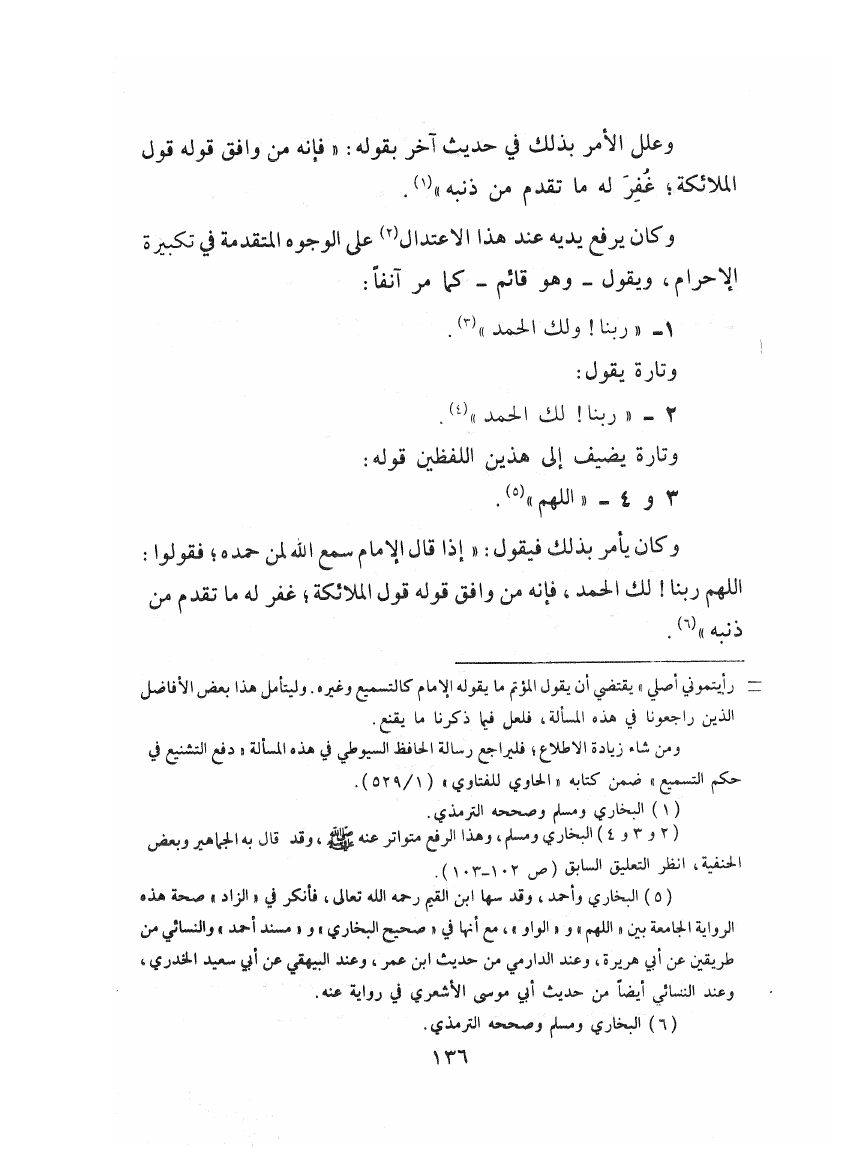 وعلل الأمر بذلك في حديث آخر بقوله : « فإنه من وافق قوله قول
الملائكة ؛ غُفِرَ له ما تقدم من ذنبه »(١) .
وكان يرفع يديه عند هذا الاعتدال(٢) على الوجوه المتقدمة في تكبيرة
الإحرام ، ويقول - وهو قائم - كما مر آنفاً :
١- « ربنا ! ولك الحمد »(٣) .
وتارة يقول :
٢ - « ربنا ! لك الحمد »(٤) .
وتارة يضيف إلى هذين اللفظين قوله :
٣ و ٤ - « اللهم »(٥) .
وكان يأمر بذلك فيقول : « إذا قال الإمام سمع الله لمن حمده ؛ فقولوا :
اللهم ربنا ! لك الحمد ، فإنه من وافق قوله قول الملائكة ؛ غفر له ما تقدم من
ذنبه »(٦) .
= رأيتموني أصلي » يقتضي أن يقول المؤتم ما يقوله الإمام كالتسميع وغيره . وليتأمل هذا بعض الأفاضل
الذين راجعونا في هذه المسألة ، فلعل فيما ذكرنا ما يقنع .
ومن شاء زيادة الاطلاع ؛ فليراجع رسالة الحافظ السيوطي في هذه المسألة « دفع التشنيع في
حكم التسميع » ضمن كتابه « الحاوي للفتاوي » ( ١/ ٥٢٩ ) .
( ١ ) البخاري ومسلم وصححه الترمذي .
( ٢ و ٣ و ٤ ) البخاري ومسلم ، وهذا الرفع متواتر عنه ﷺ ، وقد قال به الجماهير وبعض
الحنفية ، انظر التعليق السابق ( ص ١٠٢-١٠٣ ) .
( ٥ ) البخاري وأحمد ، وقد سها ابن القيم رحمه الله تعالى ، فأنكر في « الزاد » صحة هذه
الرواية الجامعة بين « اللهم » و « الواو » ، مع أنها في « صحيح البخاري » و « مسند أحمد » والنسائي من
طريقين عن أبي هريرة ، وعند الدارمي من حديث ابن عمر ، وعند البيهقي عن أبي سعيد الخدري ،
وعند النسائي أيضاً من حديث أبي موسى الأشعري في رواية عنه .
( ٦ ) البخاري ومسلم وصححه الترمذي .
١٣٦